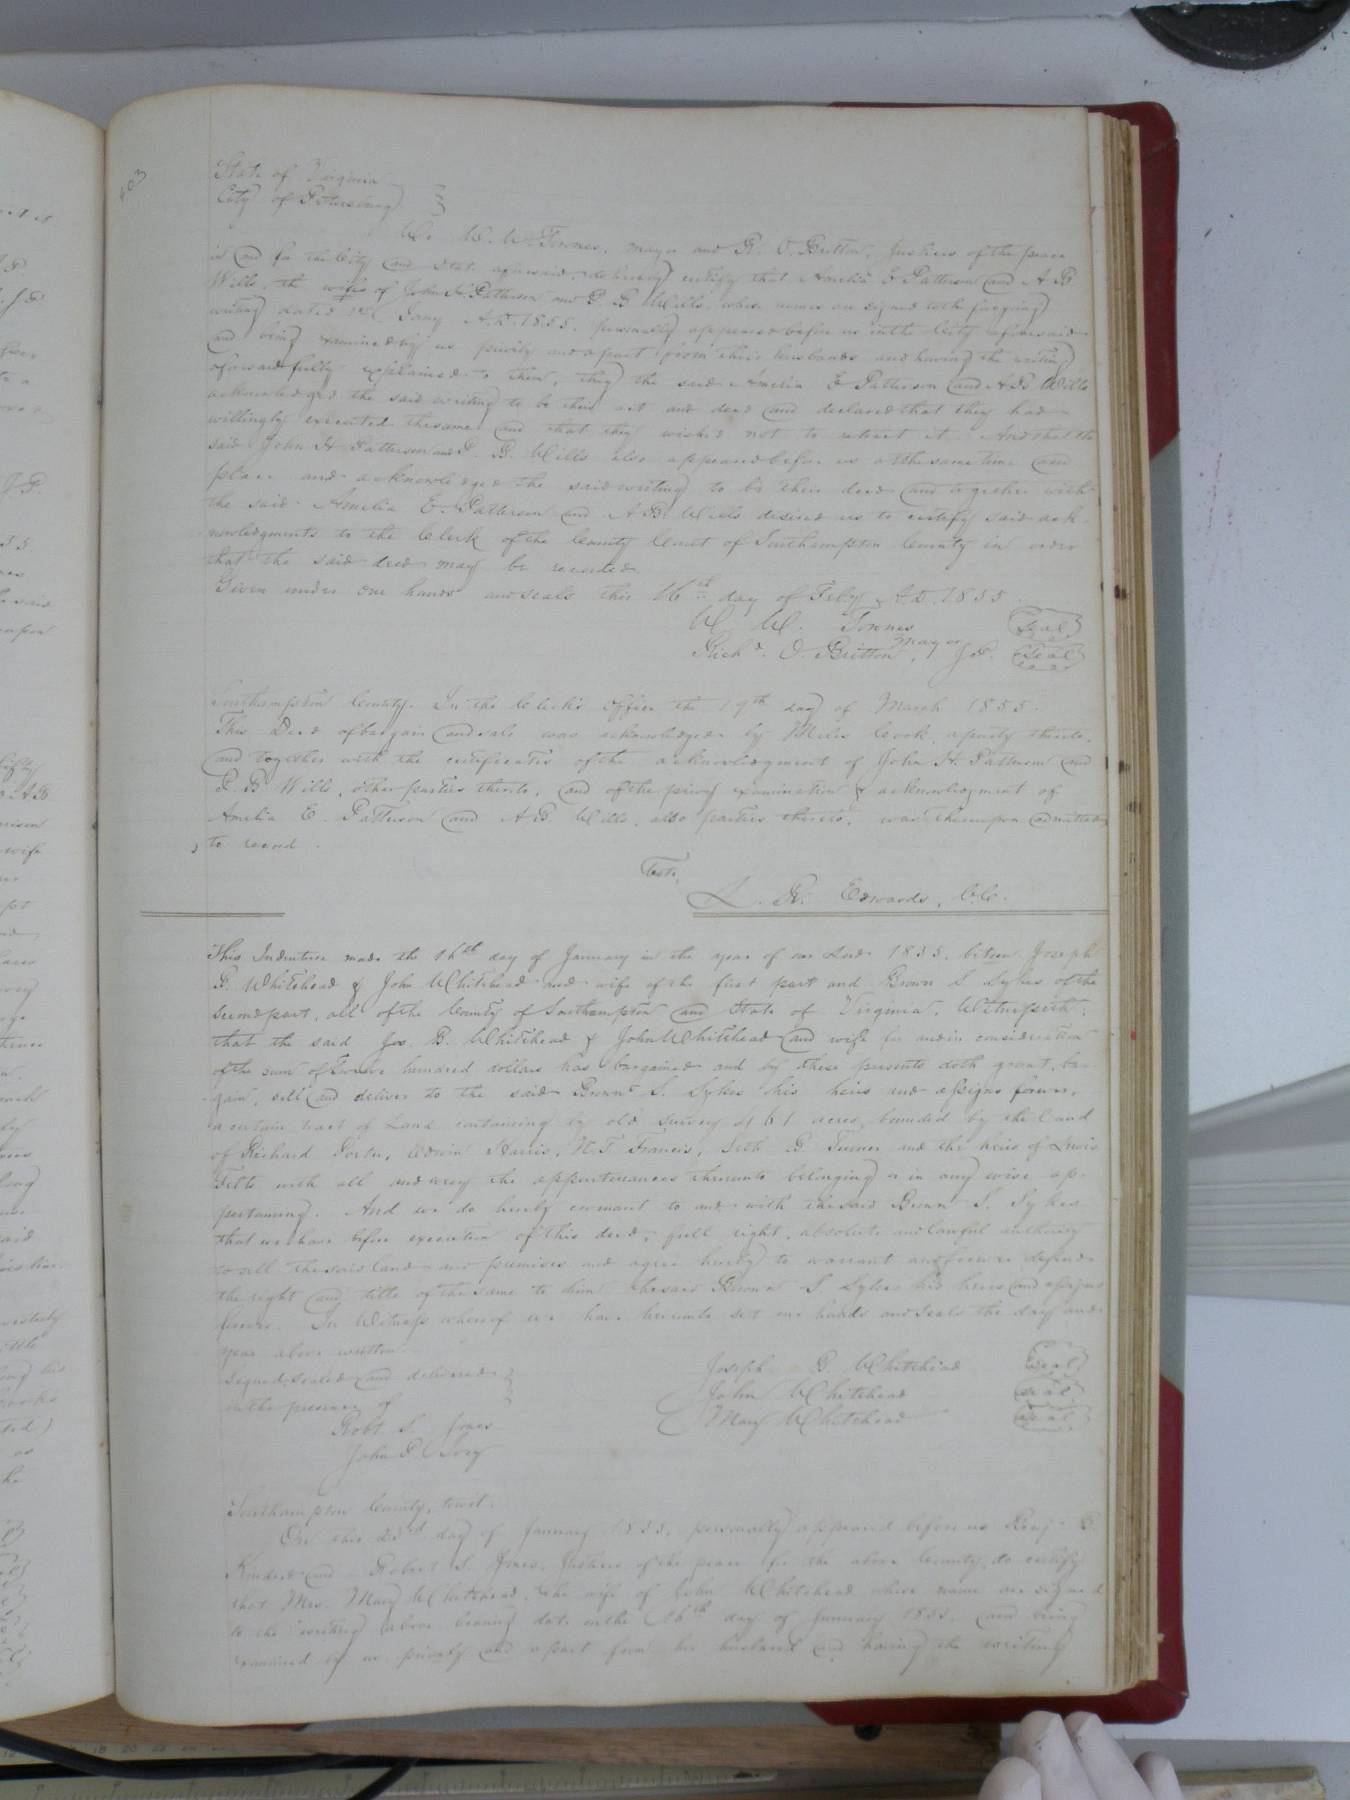 403
State of Virginia
City of Petersburg
We W. W. Townes, mayor and R. O. Britton, Justices of the peace
in and for the City and State aforesaid, do hereby certify that Amelia E Patterson and A B
Wills, the wifes of John H Patterson and P B Wills whose names are signed to the forgoing
writing dated 1st Jany A.D. 1855, personally appeared before us in the City aforesaid
and being examined by us privily and apart from their husbands and having the writing
aforesaid fully explained to them, they the said Amelia E Patterson and A B Wills
acknowledged the said writing to be their act and deed and declared that they had
willingly executed the same and that they wished not to retract it. And that the
said John H Patterson and P. B. Wills also appeared before us at the same time and
place and acknowledged the said writing to be their deed and together with
the said Amelia E. Patterson and A. B. Wills desired us to certify said ack
nowledgments to the Clerk of the County Court of Southampton County in order
that the said deed may be recorded.
Given under our hands and seals this 16th day of Feby A.D. 1855
W. W. Townes Seal
mayor
Richd. O. Britton, J.P. Seal
Southampton County. In the Clerk's Office the 19th day of March 1855.
This Deed of bargain and sale was acknowledged by Miles Cook, a party thereto,
and together with the certificates of the acknowledgment of John H. Patterson and
P. B Wills, other parties thereto, and of the privy examination & acknowledgment of
Amelia E. Patterson and A. B. Wills, also parties thereto, was thereupon admitted
to record.
Teste,
L. R. Edwards, C.C.
This Indenture made the 16th day of January in the year of our Lord 1855, between Joseph
B. Whitehead & John Whitehead and wife of the first part and Brown S. Sykes of the
second part, all of the County of Southampton and State of Virginia, Witnesseth:
that the said Jos. B. Whitehead & John Whitehead and wife for and in consideration
of the sum of Twelve hundred dollars has bargained and by these presents doth grant, bar
gain, sell and deliver to the said Brown S. Sykes his heirs and assigns forever,
a certain tract of Land containing by old survey 461 acres, bounded by the land
of Richard Porter, Edwin Harris, N. T. Francis, Seth B Turner and the heirs of Lewis
with all and every the appurtenances thereunto belonging or in any wise ap-
pertaining. And we do hereby covenant to and with the said Brown S. Sykes
that we have before execution of this deed, full right, absolute and lawful authority
to sell the said land and premises and agree hereby to warrant and forever defend
the right and title of the same to him the said Brown S. Sykes his heirs and assigns
forever. In Witness whereof we have hereunto set our hands and seals the day and
year above written
Signed, sealed and delivered
in the presence of
Joseph B Whitehead Seal
John Whitehead Seal
Mary Whitehead Seal
Robt S. Jones
John P
Southampton County, to wit:
On this 23rd day of January 1855, personally appeared before us Benj. C.
Kindred and Robert S. Jones, Justices of the peace for the above County, do certify
that Mrs. Mary Whitehead, the wife of John Whitehead whose name are signed
to the writing above bearing date on the 16th day of January 1855, and being
examined by us privily and apart from her husband and having the writing